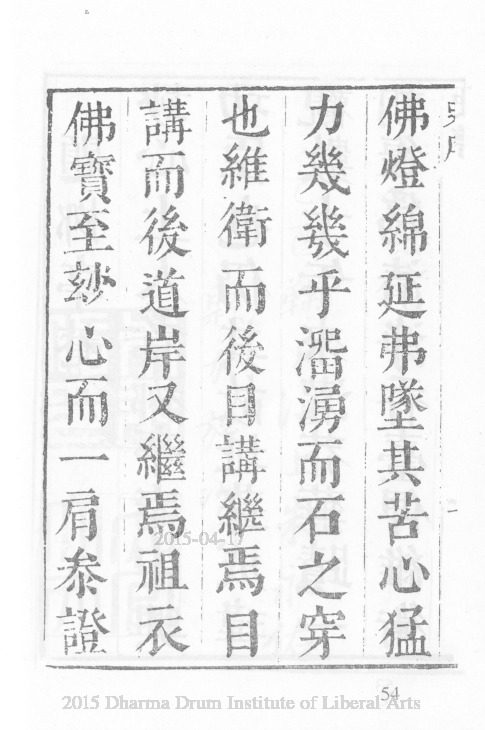 佛燈綿延弗墜其苦心猛
力幾幾乎溜湧而石之穿
也維衛而後目講繼焉目
講而後道岸又繼焉祖衣
佛寶至玅心而一肩叅證
2015-04-17
54
2015 Dharma Drum Institute of Liberal Arts